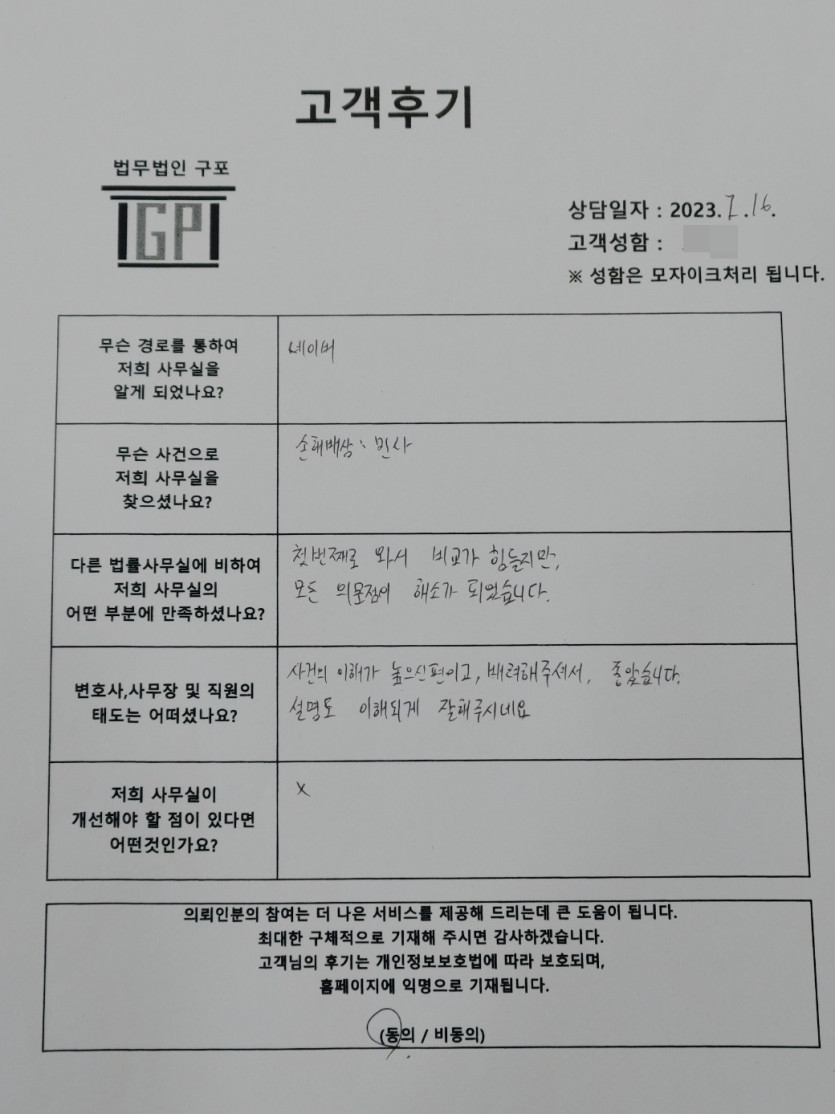 고객후기
법무법인 구포
GP
상담일자 : 2023. 7. 16.
고객성함 :
※ 성함은 모자이크처리 됩니다.
무슨 경로를 통하여
저희 사무실을
알게 되었나요?
네이버
무슨 사건으로
저희 사무실을
찾으셨나요?
손해배상 : 민사
다른 법률사무실에 비하여
저희 사무실의
어떤 부분에 만족하셨나요?
첫번째로 와서 비교가 힘들지만,
모든 의문점이 해소가 되었습니다.
변호사,사무장 및 직원의
태도는 어떠셨나요?
사건의 이해가 높으신편이고, 배려해주셔서, 좋았습니다.
설명도 이해되게 잘해주시네요
저희 사무실이
개선해야 할 점이 있다면
어떤것인가요?
X
의뢰인분의 참여는 더 나은 서비스를 제공해 드리는데 큰 도움이 됩니다.
최대한 구체적으로 기재해 주시면 감사하겠습니다.
고객님의 후기는 개인정보보호법에 따라 보호되며,
홈페이지에 익명으로 기재됩니다.
(동의 / 비동의)